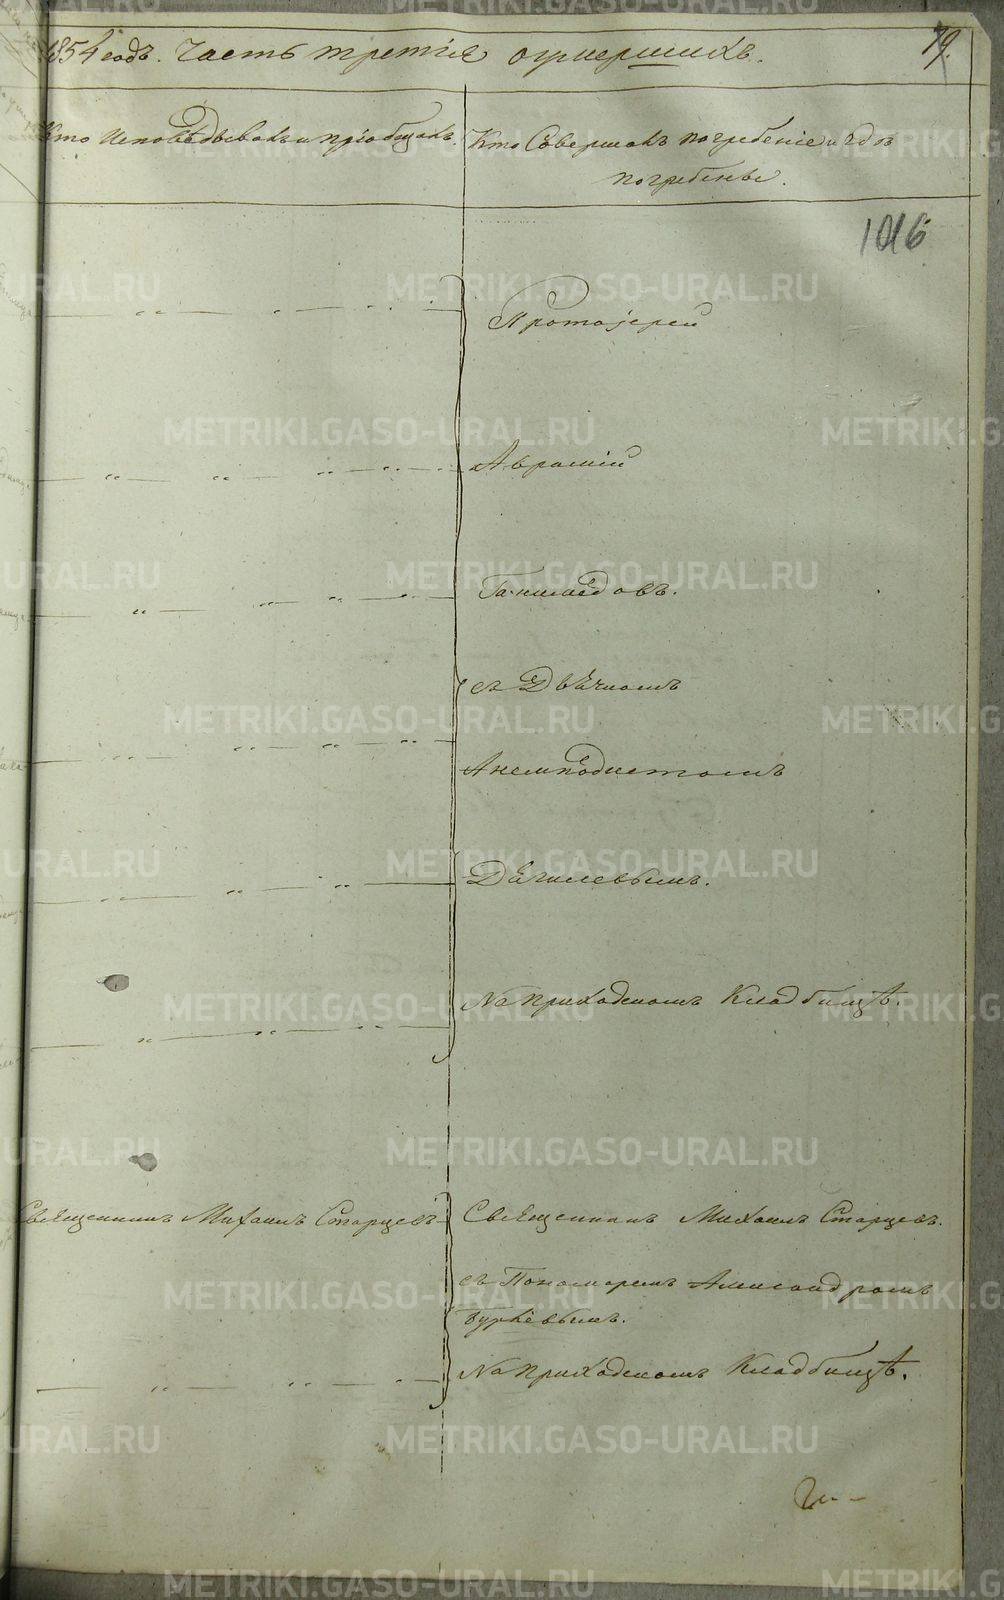 1854 годъ. Часть третія о умершихъ.
79.
Кто исповѣдывалъ и пріобщалъ.
Кто Совершалъ погребеніе и гдѣ
погребены.
1016
Протоіерей
Аврамій
с Дьячкомъ
Анемподистомъ
На приходскомъ Кладбищѣ.
Священникъ Михаилъ Старцевъ
Священникъ Михаилъ Старцевъ.
съ Пономаремъ Александромъ
На приходскомъ Кладбищѣ.
METRIKI.GASO-URAL.RU